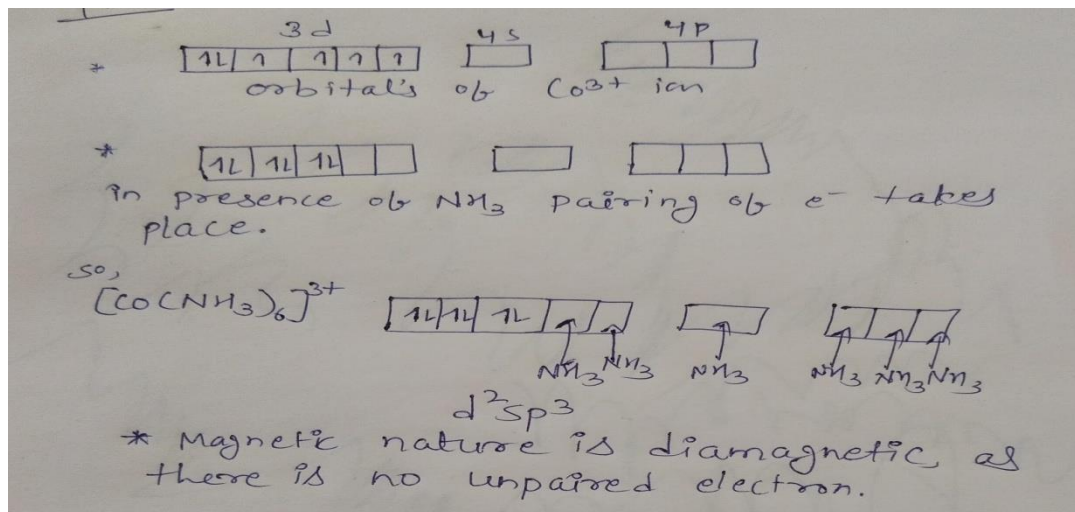 3d 4s 4p
* 1L 1 1 1 1
orbital's of Co3+ ion
* 1L 1L 1L
in presence of NH3 pairing of e- takes
place.
so,
[Co(NH3)6]3+ 1L 1L 1L
NH3 NH3 NH3 NH3 NH3 NH3
d2sp3
* Magnetic nature is diamagnetic, as
there is no unpaired electron.